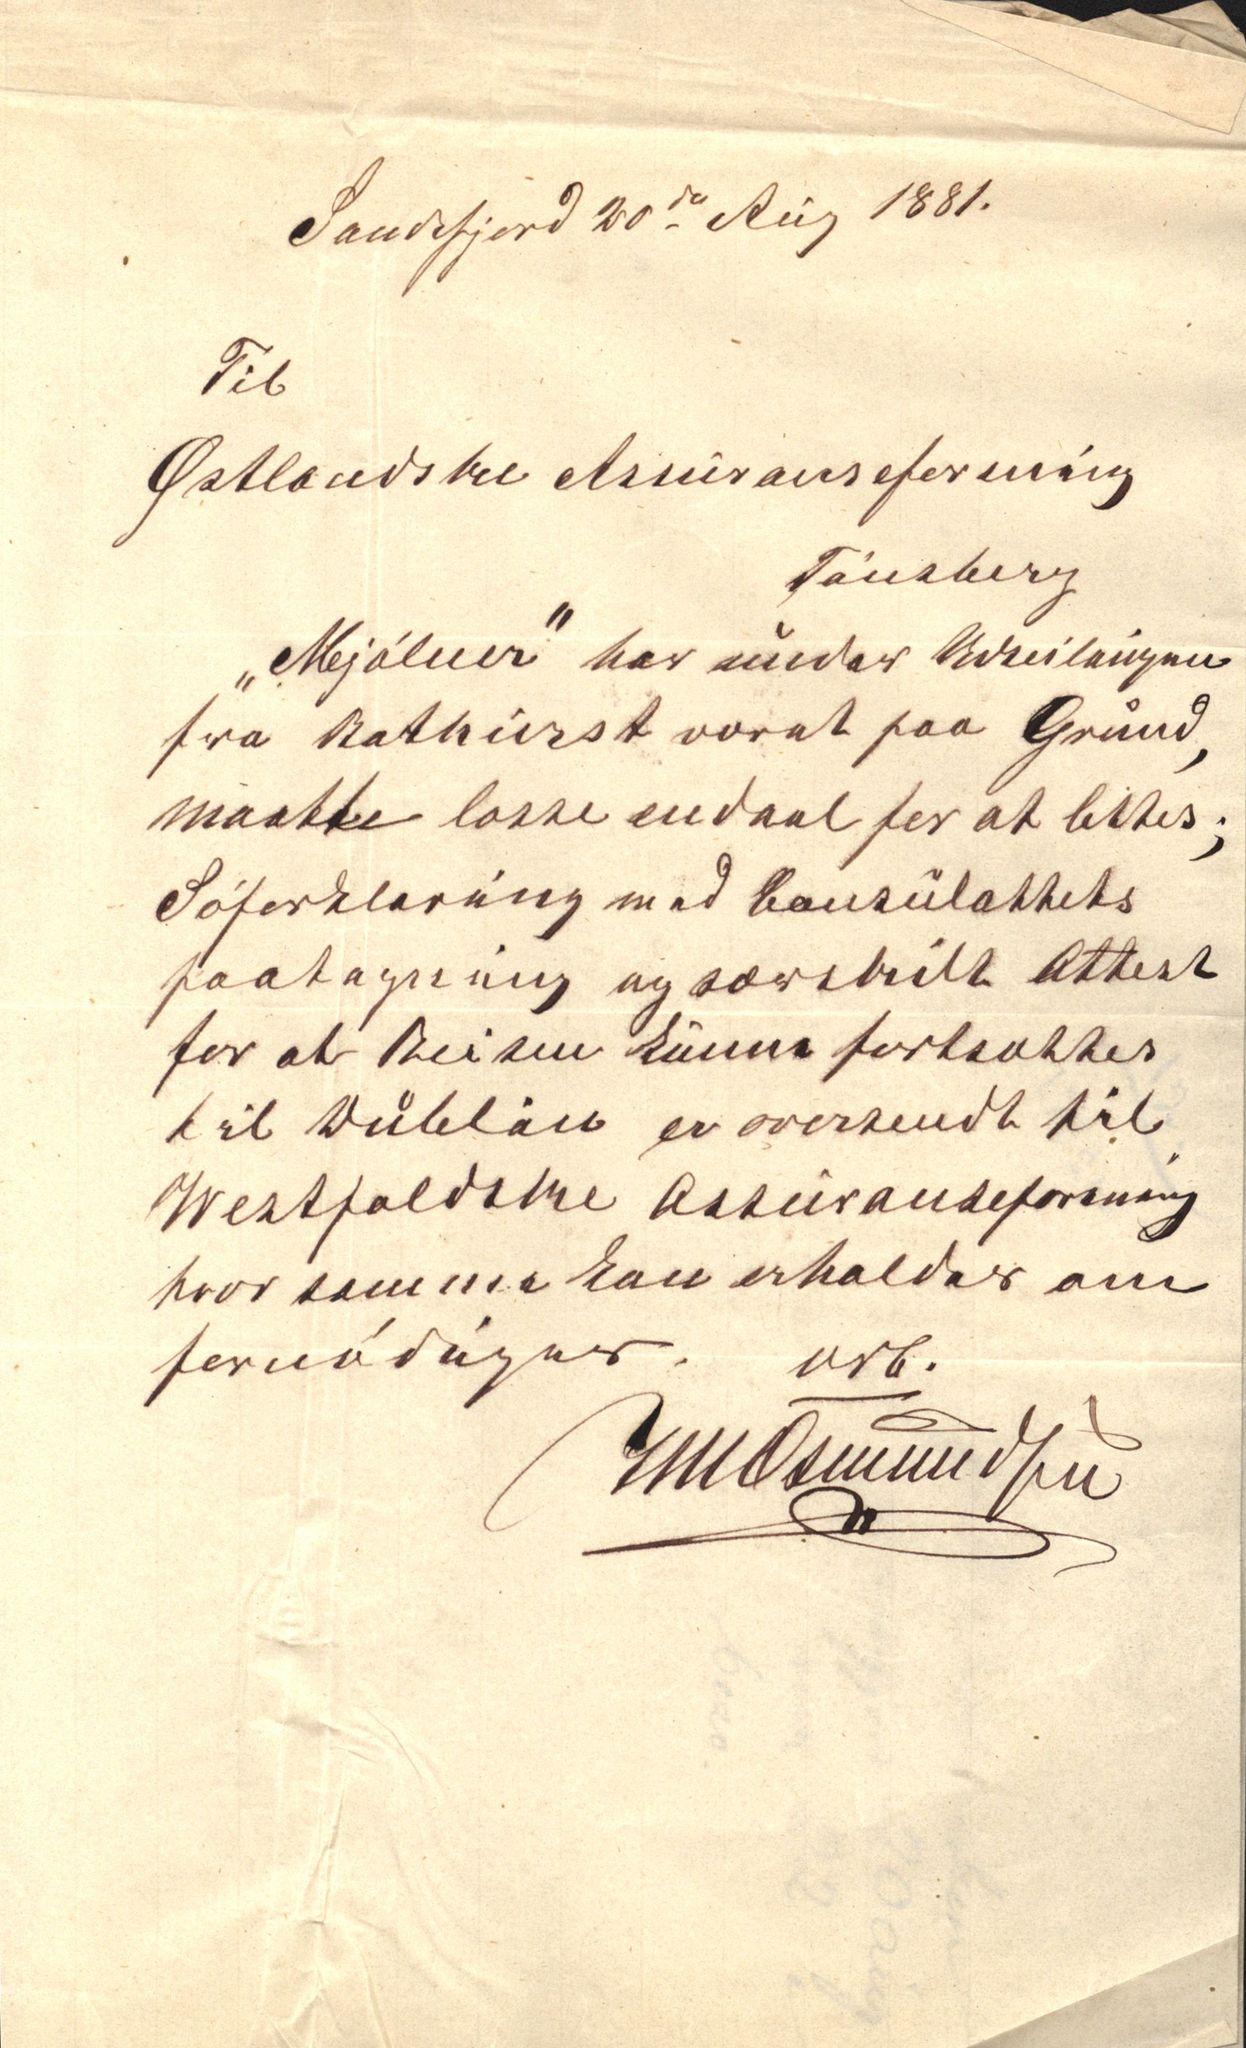 Sandefjord 20de Aug 1881.
Til
Østlandske Assuranseforening
Tönsberg
„Mjölner" har under Udseilingen
fra Bathurst voret paa Grund,
maatte losse endael for at lettes;
Söforklaring med Consulattets
paategning og særskilt Attest
for at Reisen kunne fortsættes
til Dublin er oversendt til
Westfoldske Assuranseforening
hvor samme kan erholdes om
fornödiges. Ærb.
Osmundsen